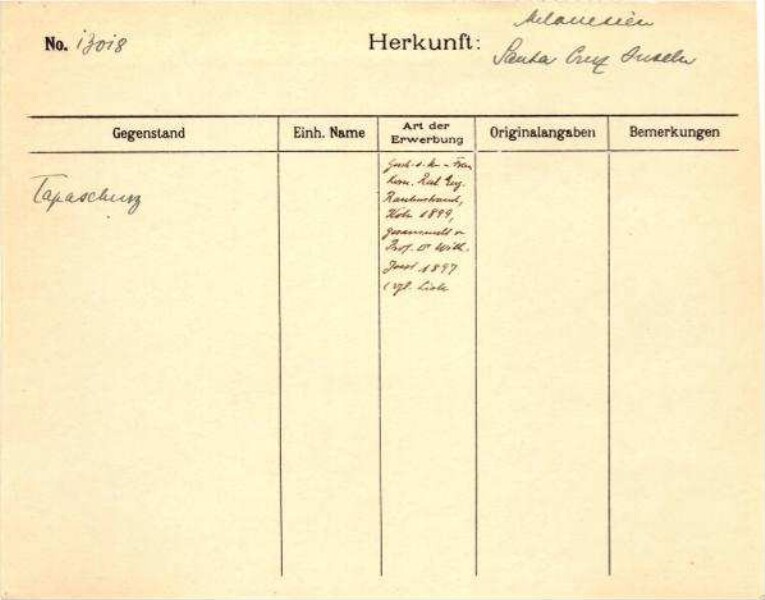 No. 13018
Herkunft:
Melanesien
Santa Cruz Inseln
Gegenstand
Einh. Name
Art der
Erwerbung
Originalangaben
Bemerkungen
Tapaschurz
Gesch. v. Frau
Rautenstrauch,
Köln 1899,
gesammelt v.
Prof. Dr Wilh.
Joest 1897
(vgl. Liste